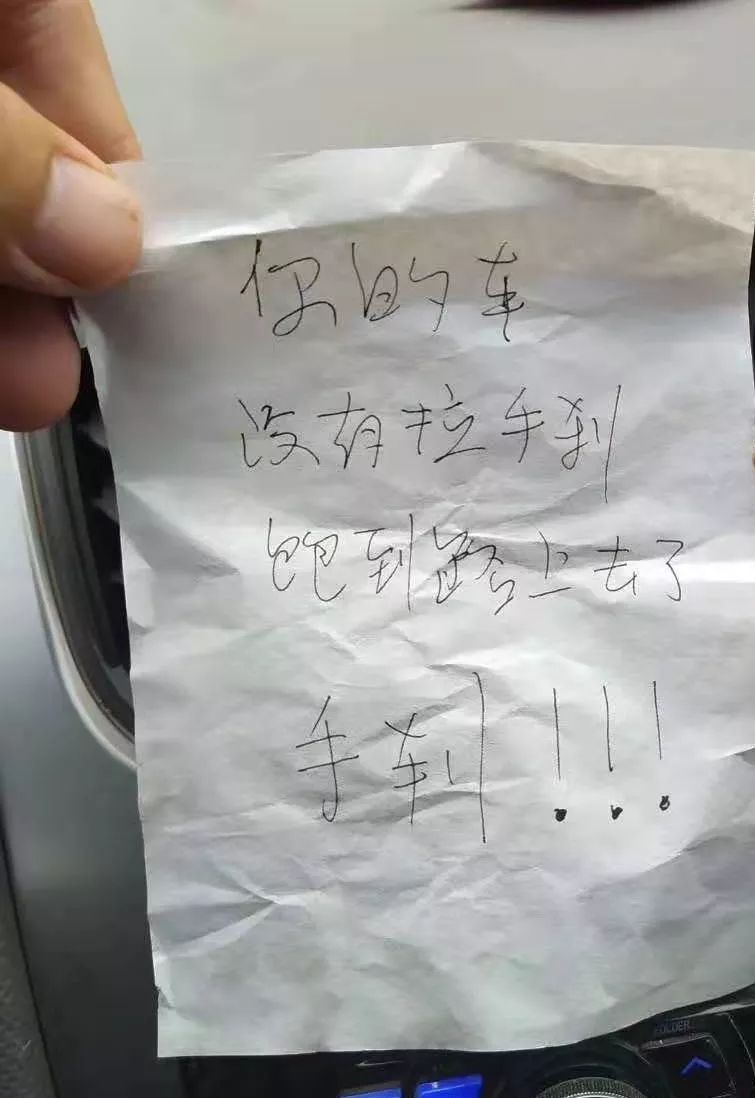 你的车
没有拉手刹
跑到路上去了
手刹!!!
FOLDER